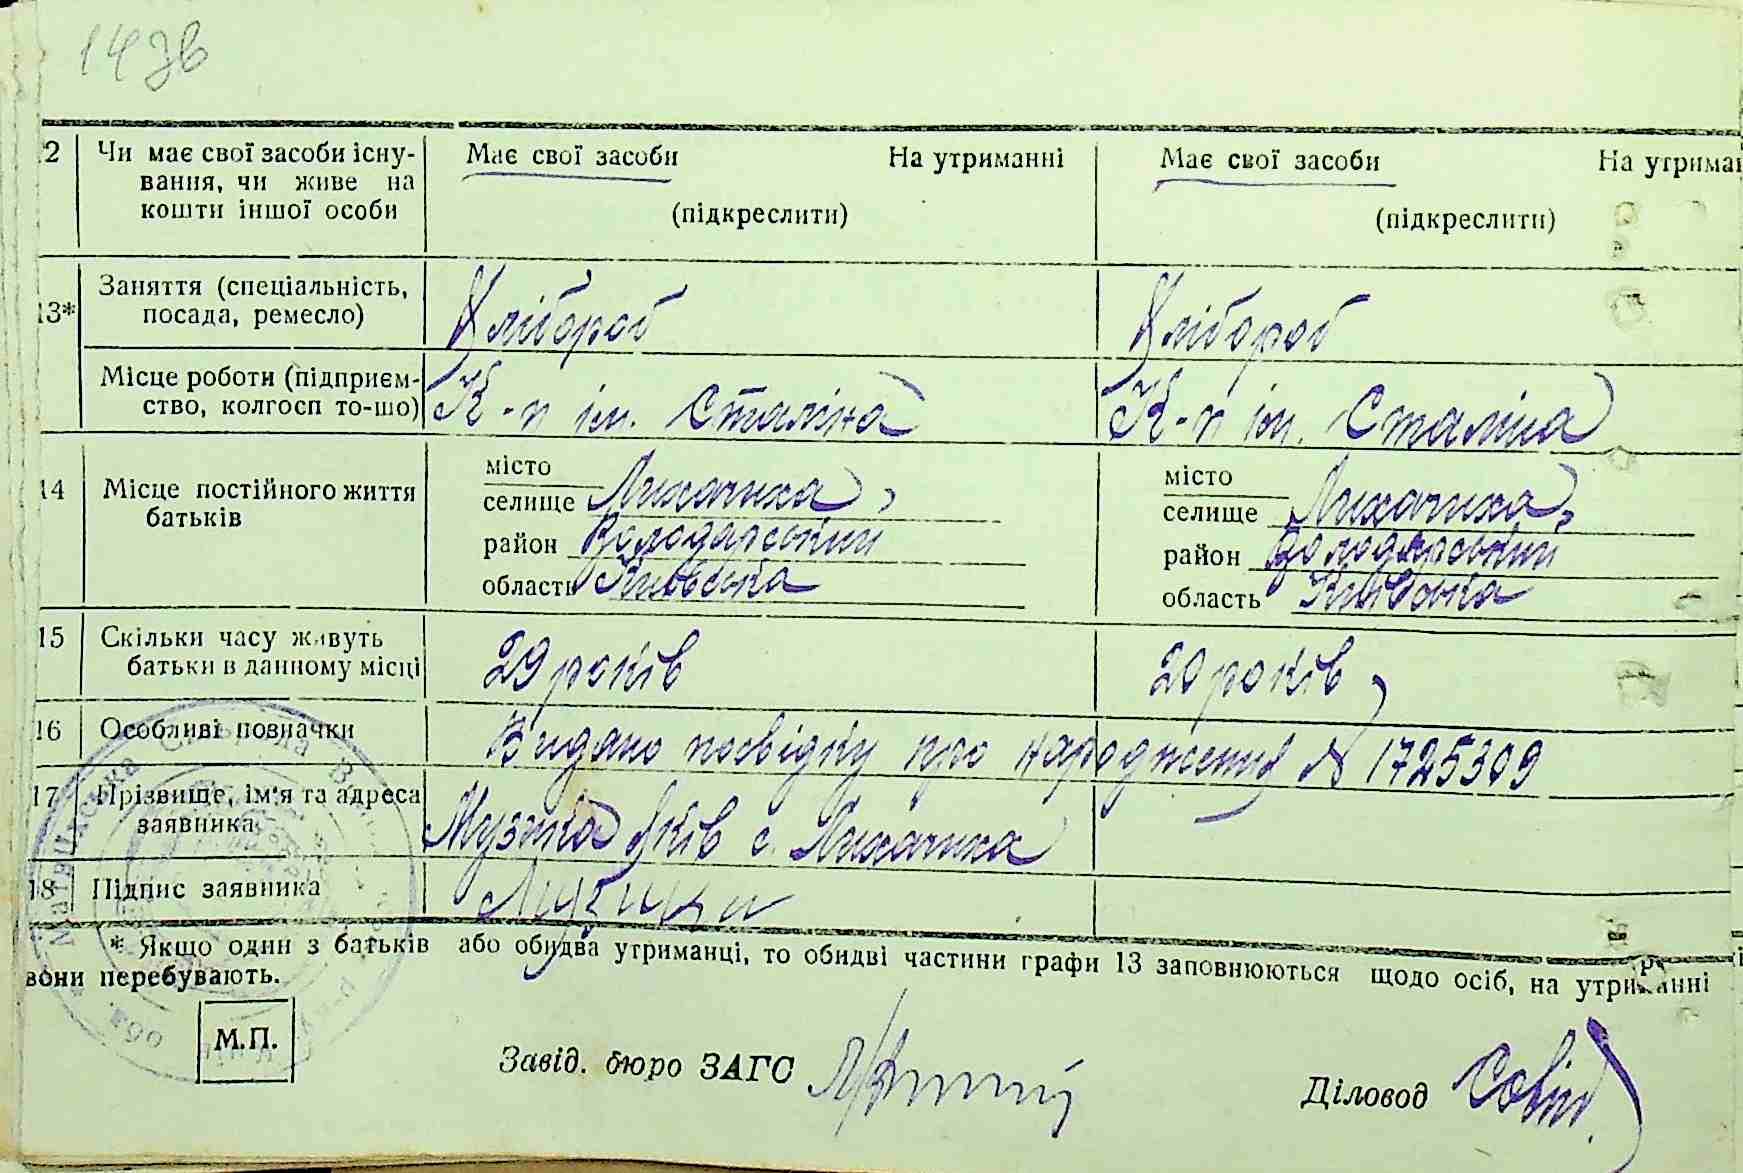 143в
12 Чи має свої засоби існу- Має свої засоби На утриманні Має свої засоби На утриман
вання, чи живе на
кошти іншої особи (підкреслити) (підкреслити)
13* Заняття (спеціальність, Хлібороб Хлібороб
посада, ремесло)
Місце роботи (підприєм- К-п ім. Сталіна К-п ім. Сталіна
ство, колгосп то-шо)
14 Місце постійного життя місто місто
батьків селище Лихачиха, селище Лихачиха,
район Володарський район Володарський
область Київська область Київська
15 Скільки часу живуть 29 років 20 років
батьки в данному місці
16 Особливі позначки Видано посвідку про народження № 1725309
17 Прізвище, ім'я та адреса
заявника Музика Яків с. Лихачиха
18 Підпис заявника Музика
* Якщо один з батьків або обидва утриманці, то обидві частини графи 13 заповнюються щодо осіб, на утриманні
вони перебувають.
М.П.
Завід. бюро ЗАГС
Діловод